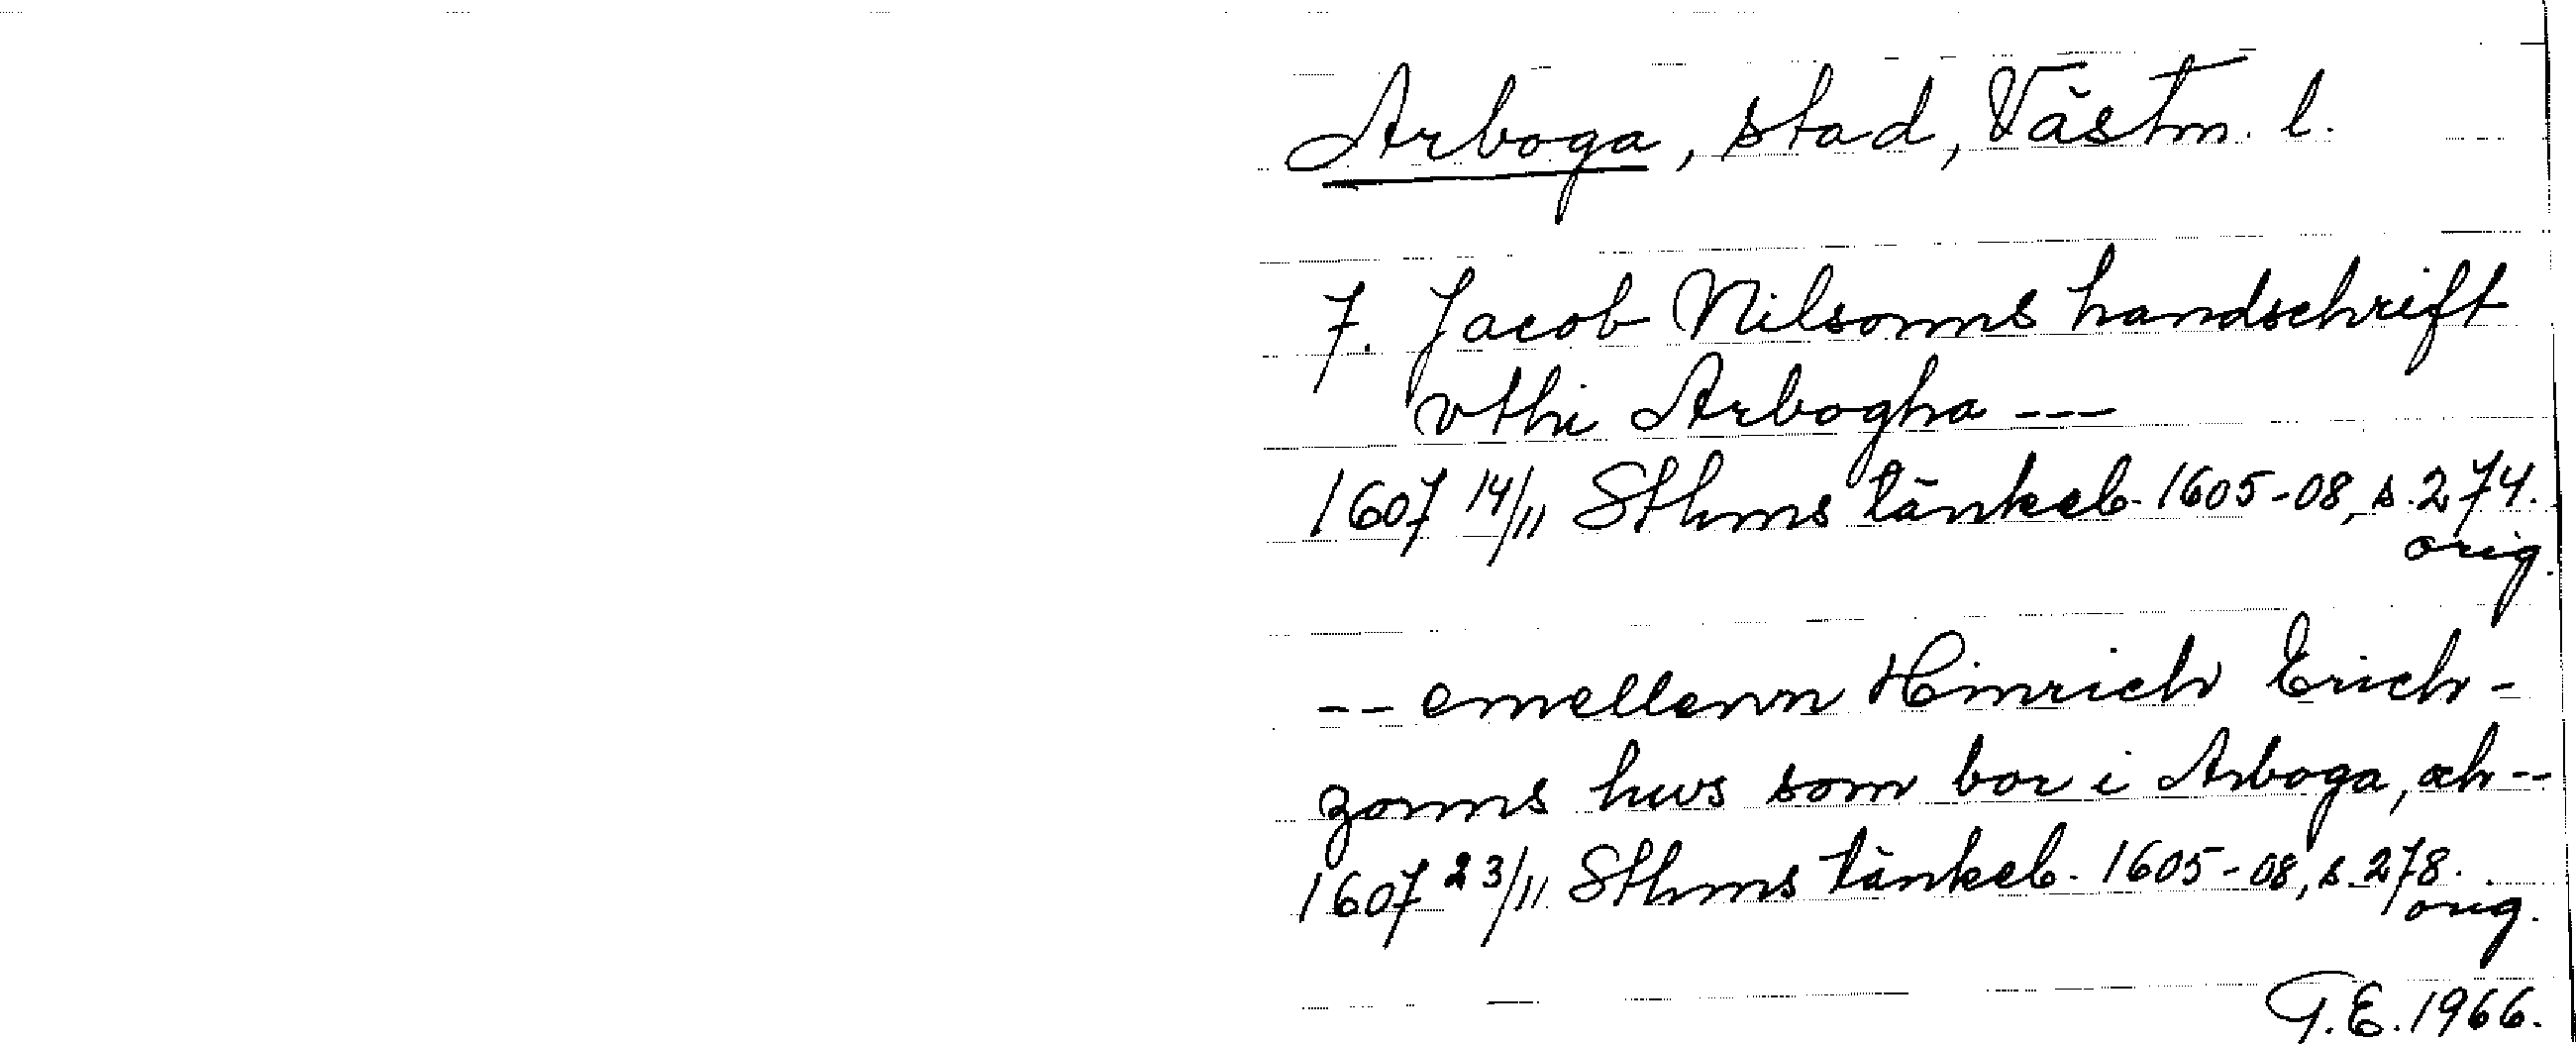 Arboga, stad, Västm. l.
7. Jacob Nilsonns handschrift
vthi Arbogha ---
1607 14/11 Sthms tänkeb. 1605-08, s. 274.
orig.
-- emellenn Hinrich Erich-
zonns hws som bor i Arboga, och --
1607 23/11 Sthms tänkeb. 1605-08, s. 278.
orig.
T.E. 1966.